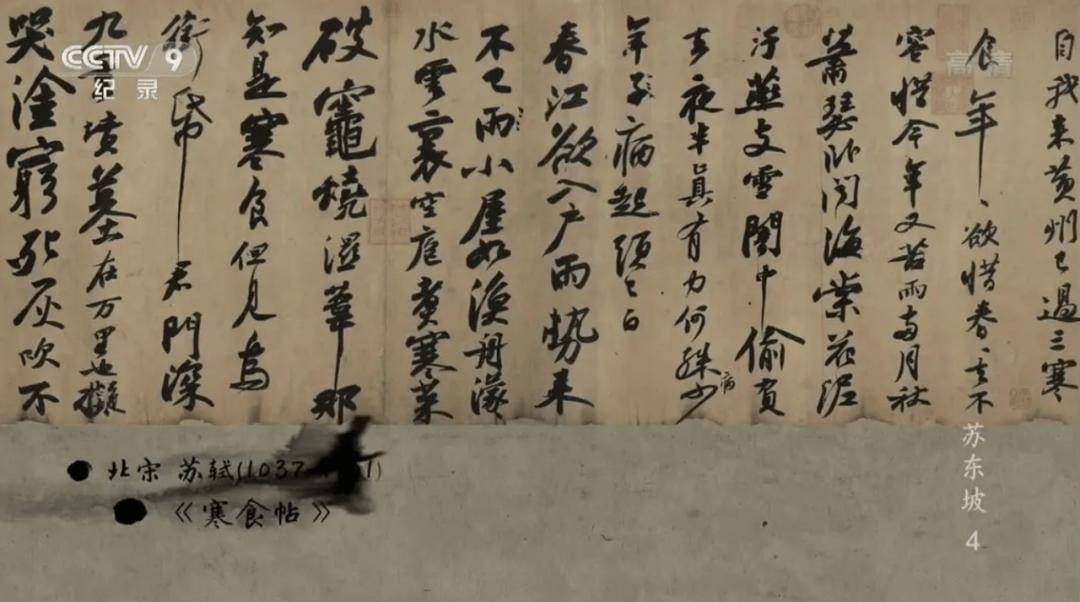 CCTV 9
纪录
高清
自我来黄州已過三寒
食年〻欲惜春〻去不
容惜今年又苦雨兩月秋
蕭瑟卧聞海棠花泥
汙燕支雪闇中偷負
去夜半真有力何殊少
病
年子病起頭已白
春江欲入户雨勢来
不已雨小屋如漁舟濛
水雲裏空庖煑寒菜
破竈燒濕葦那
知是寒食但見烏
銜帋君門深
九重墳墓在万里也擬
哭塗窮死灰吹不
北宋 苏轼(1037 1)
《寒食帖》
苏东坡 4